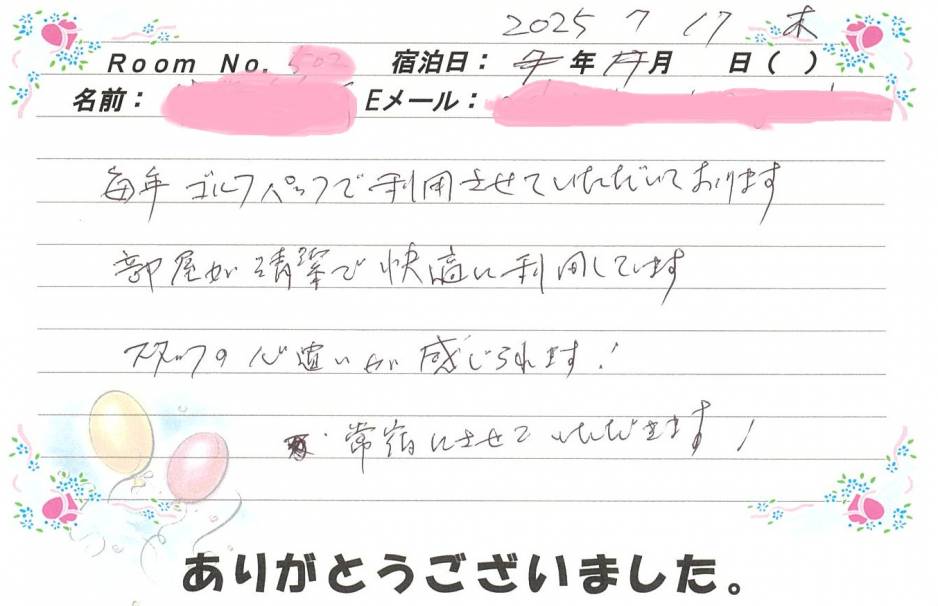 2025 7 17 木
Room No. 502 宿泊日： 年 月 日（ ）
名前： Eメール：
毎年 ゴルフパックで利用させていただいております
部屋が清潔で快適に利用しています
スタッフの心遣いが感じられます！
常宿にさせていただきます！
ありがとうございました。